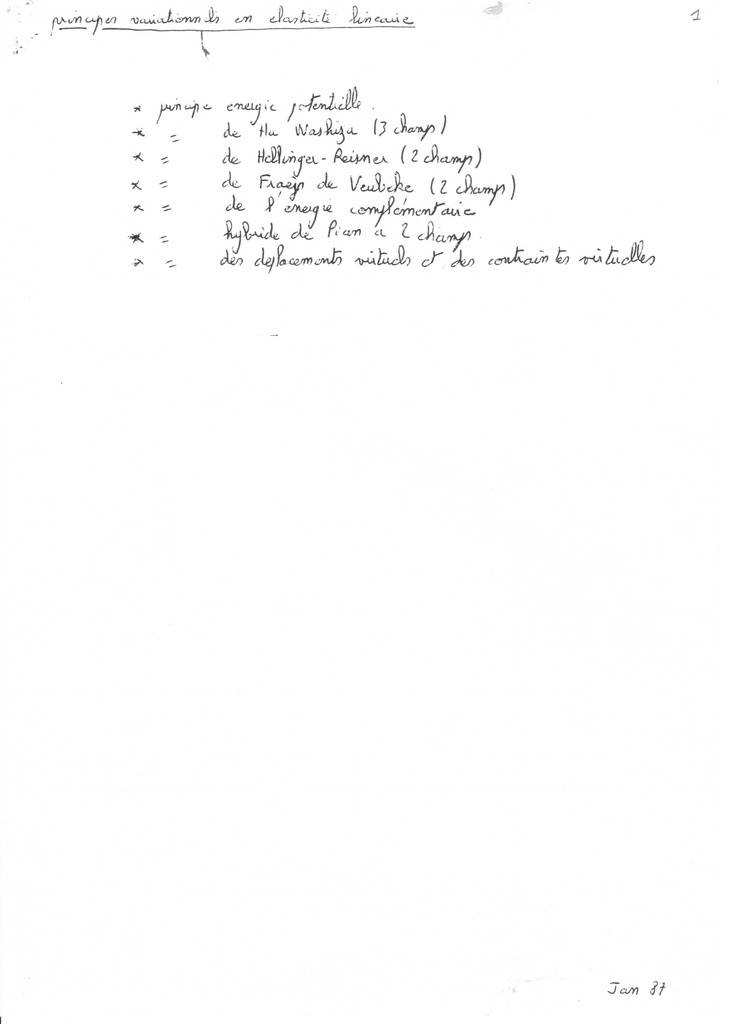 principes variationnels en elasticité lineaire
1
* principe energie potentielle.
* = de Hu Washizu (3 champs)
* = de Hellinger-Reisner (2 champs)
* = de Fraeijs de Veubeke (2 champs)
* = de l'énergie complémentaire
* = hybride de Pian à 2 champs.
* = des deplacements virtuels et des contraintes virtuelles
Jan 87